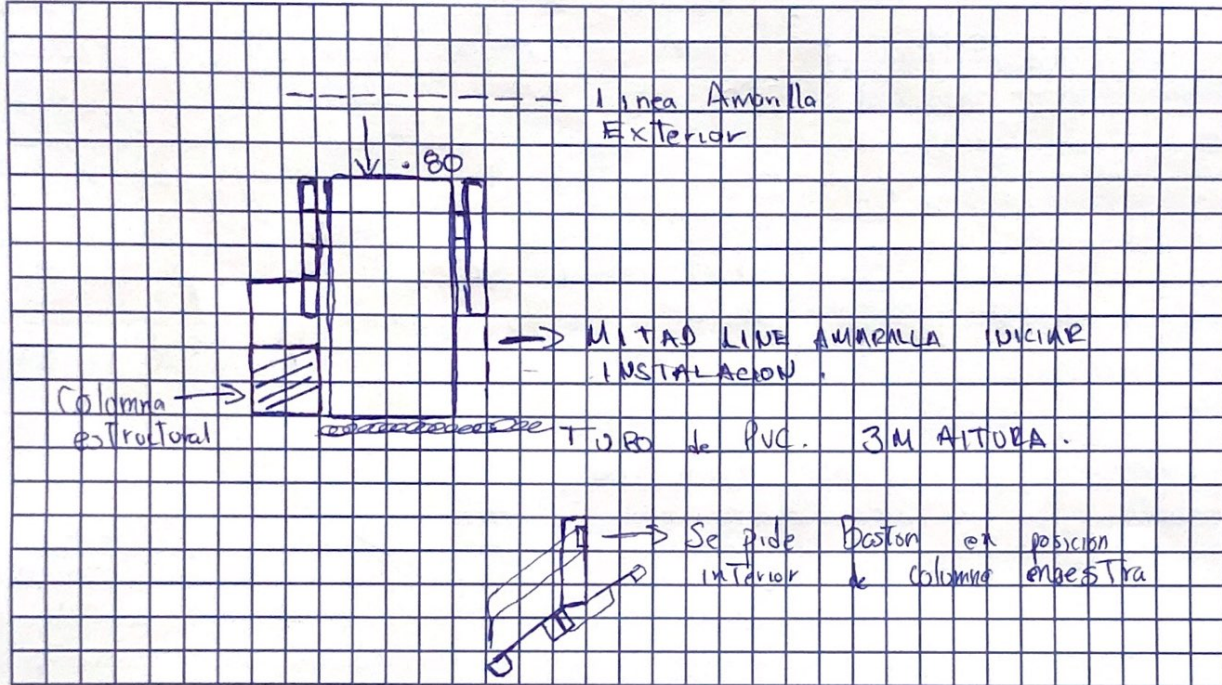 linea Amarilla
Exterior
.80
MITAD LINE AMARALLA INICIAR
INSTALACION.
Colomna
estructural
TUBO de PVC. 3M ALTURA.
Se pide Baston en posicion
interior de columna